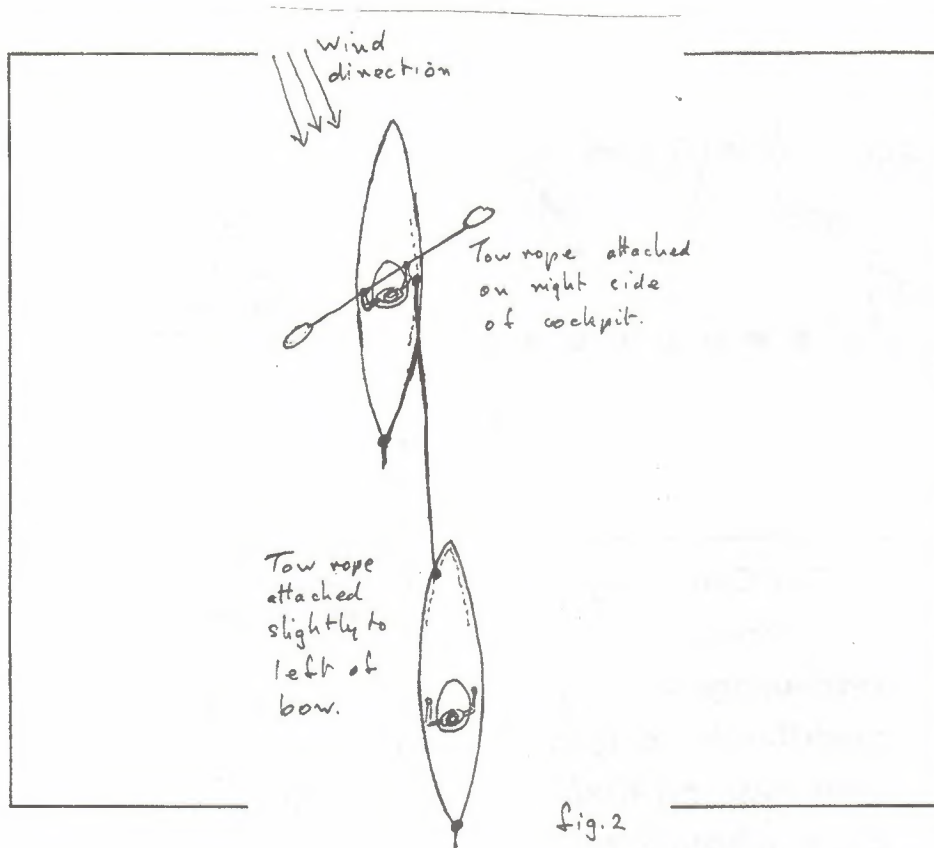 wind
direction
Tow rope attached
on right side
of cockpit.
Tow rope
attached
slightly to
left of
bow.
fig.2